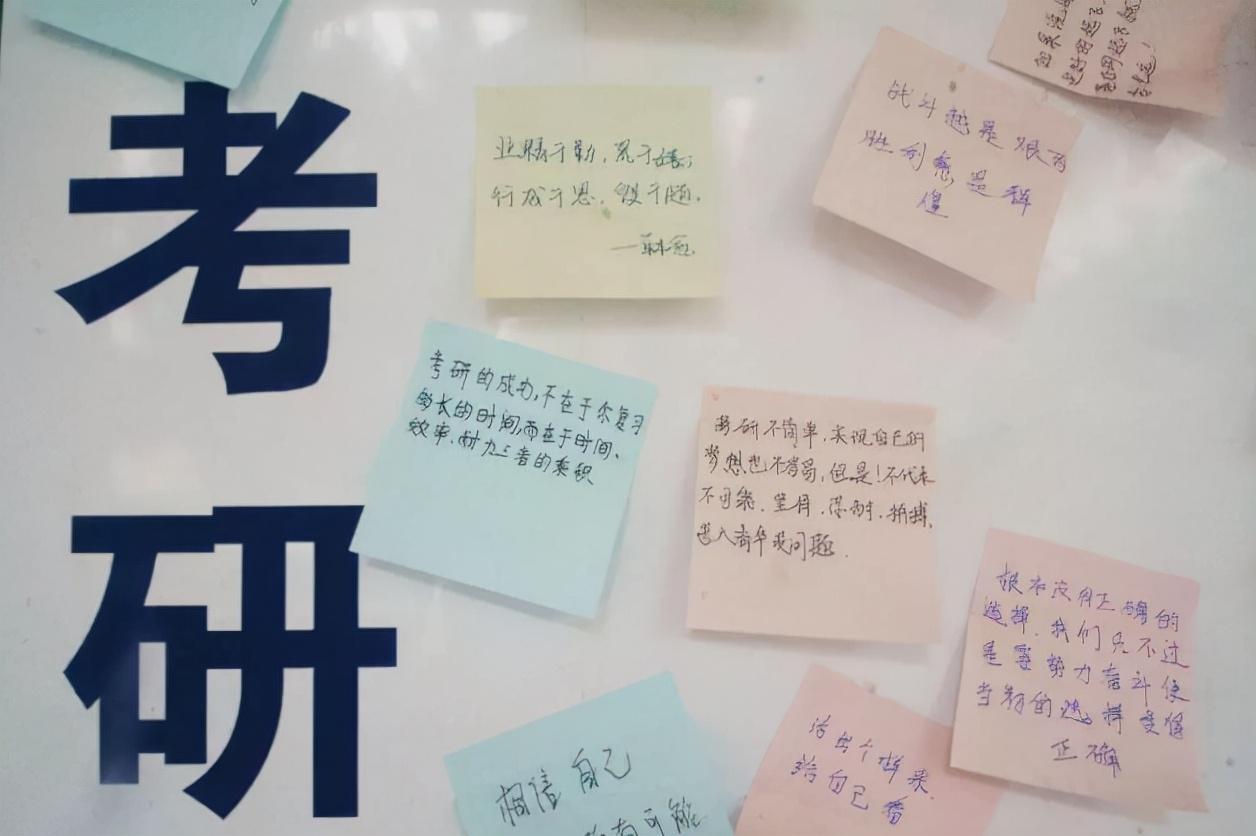 考研
业精于勤,荒于嬉;
行成于思,毁于随。
——韩愈
战斗越是艰苦
胜利愈是辉
煌
考研的成功,不在于你复习
的长的时间,而在于时间、
效率、耐力三者的乘积
考研不简单,实现自己的
梦想也不容易,但是!不代表
不可能.坚持.添砖.拼搏.
进入清华没问题.
根本没有正确的
选择.我们只不过
是要努力奋斗使
当初的选择变得
正确
相信自己
有可能
活出个样来
给自己看